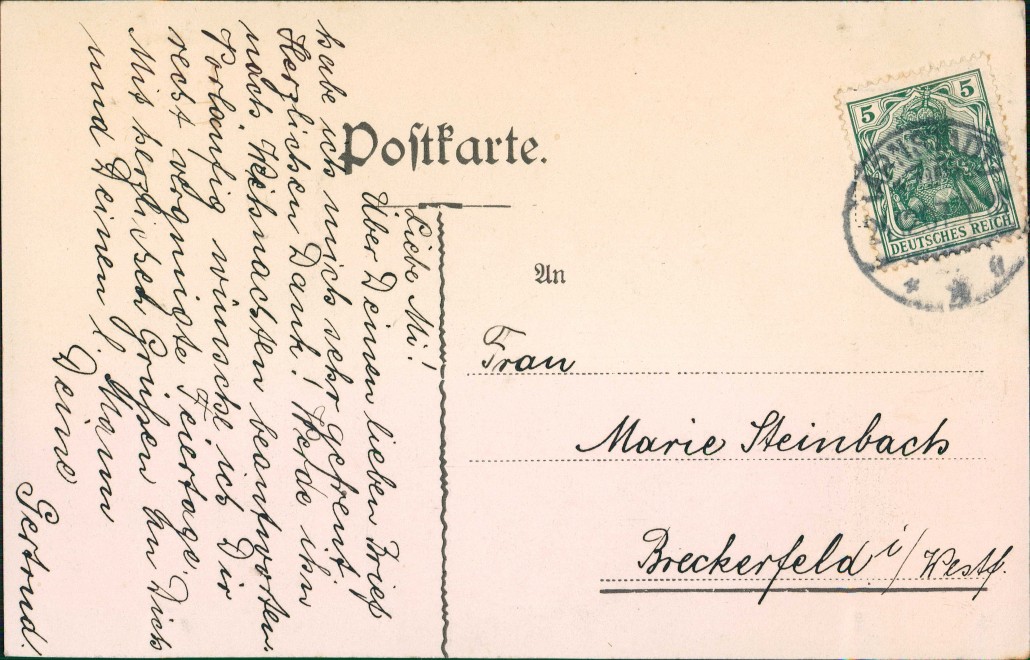 Postkarte.
5 5
DEUTSCHES REICH
An
Frau
Marie Steinbach
Breckerfeld i/Westf.
Liebe Mi!
Über Deinen lieben Brief
habe ich mich sehr gefreut
Herzlichen Dank! Werde ihn
nach Weihnachten beantworten.
Vorläufig wünsche ich Dir
recht vergnügte Feiertage.
Mit herzlichen Grüßen an Dich
und Deinen l. Mann
Deine
Gertrud.